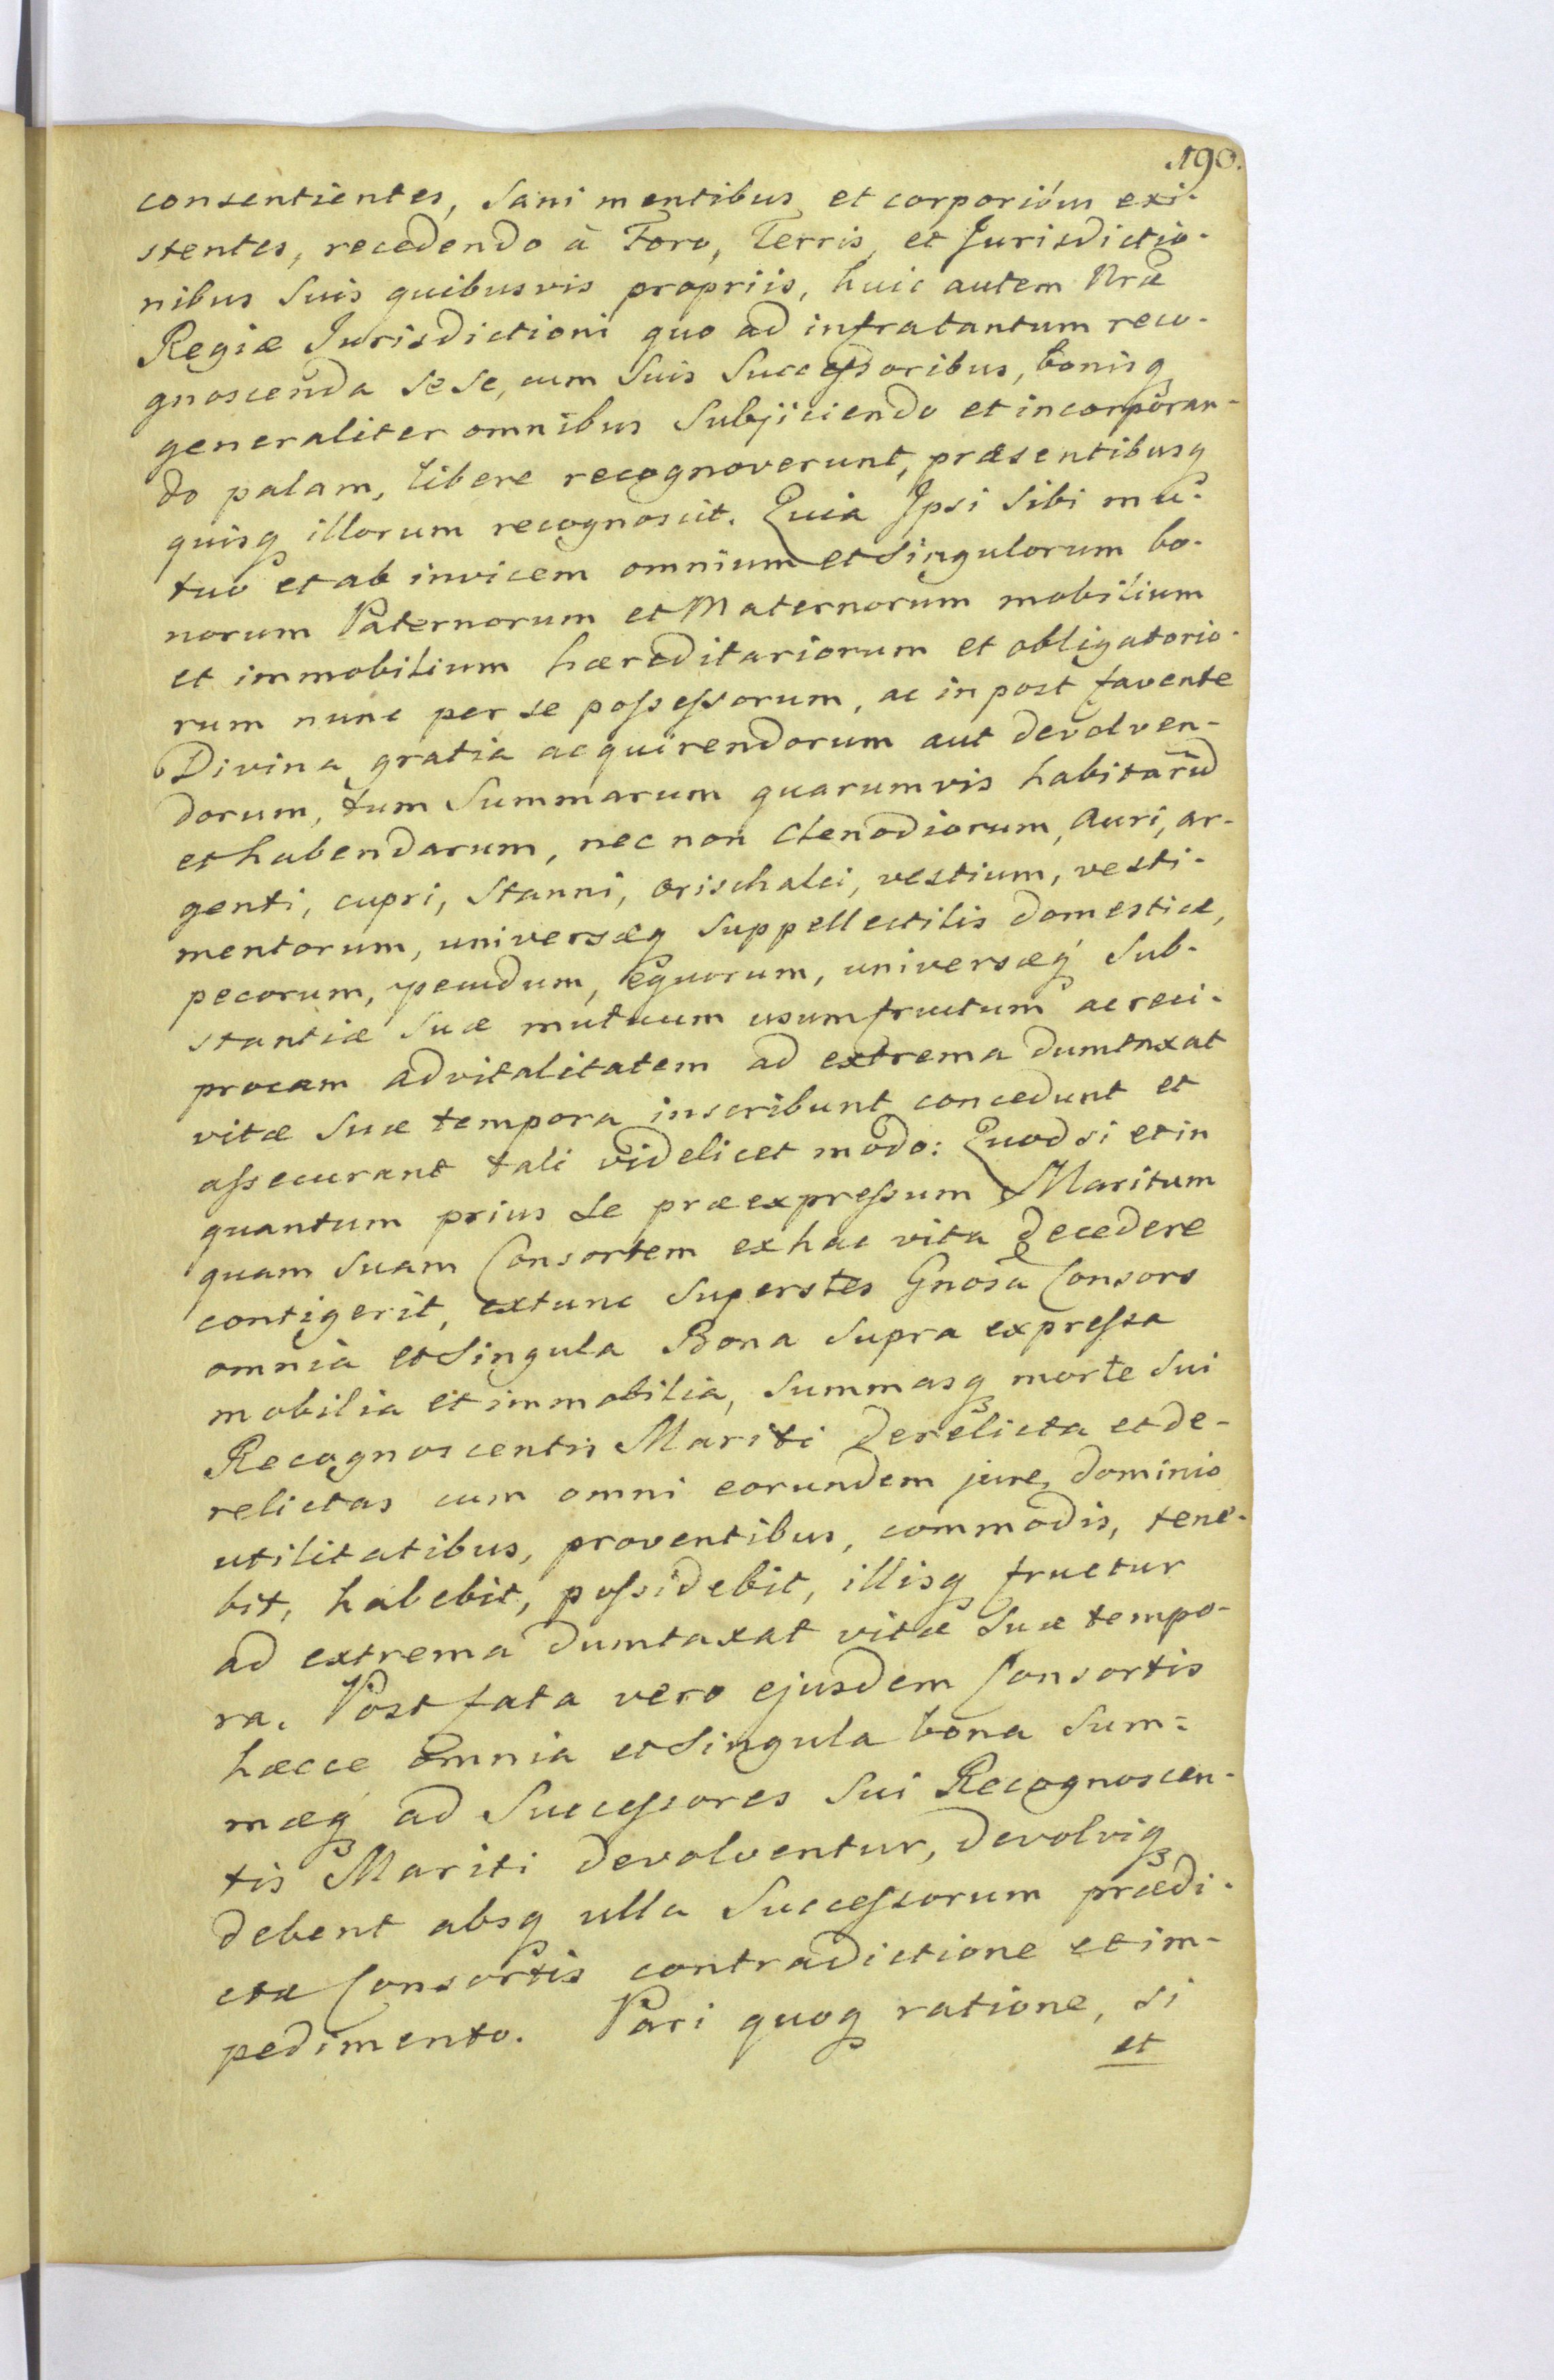 190.
consentientes, Sani mentibus et corporibus exi-
stentes, recedendo à Foro, Terris, et Jurisdictio-
nibus Suis quibusvis propriis, huic autem Nrae
Regiæ Jurisdictioni quo ad infratantum reco-
gnoscenda sese, cum Suis Successoribus, bonisq
generaliter omnibus Subjiciendo et incorporan-
do palam, libere recognoverunt, præsentibusq
quisq illorum recognoscit. Quia Ipsi Sibi mu-
tuo et ab invicem omnium et Singulorum bo-
norum Paternorum et Maternorum mobilium
et immobilium hæreditariorum et obligatorio-
rum nunc per se possessorum, ac in post favente
Divina gratia acquirendorum aut devolven-
dorum, tum Summarum quarumvis habitarū
et habendarum, nec non Clenodiorum, Auri, ar-
genti, cupri, Stanni, orischalci, vestium, vesti-
mentorum, universæq Suppellectilis domesticæ,
pecorum, pecudum, equorum, universæq Sub-
stantiæ Suæ mutuum usumfructum ac reci-
procam advitalitatem ad extrema dumtaxat
vitæ Suæ tempora inscribunt concedunt et
assecurant tali videlicet modo: Quod si et in
quantum prius Se præexpressum Maritum
quam Suam Consortem ex hac vita decedere
contigerit, extunc Superstes Gnosa Consors
omnia et Singula Bona Supra expressa
mobilia et immobilia, Summasq morte Sui
Recognoscentis Mariti derelicta et de-
relictas cum omni eorundem jure, dominio
utilitatibus, proventibus, commodis, tene-
bit, habebit, possidebit, illisq fruetur
ad extrema dumtaxat vitæ Suæ tempo-
ra. Post fata vero ejusdem Consortis
hæcce omnia et Singula bona Sum-
mæq ad Successores Sui Recognoscen-
tis Mariti devolventur, devolviq
debent absq ulla Successorum prædi-
ctæ Consortis contradictione et im-
pedimento. Pari quoq ratione, si
et